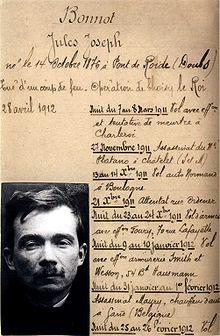 Bonnot
Jules Joseph
né le 14 Octobre 1876 à Pont de Roide (Doubs)
Tué d'un coup de feu. Opération de Choisy le Roi
28 avril 1912
Nuit du 7 au 8 Mars 1911 Vol avec effon
et tentative de meurtre à
Charleroi
27 Novembre 1911 Assassinat du Mr
Platano à Chatelet (S et M)
13 au 14 Xbre 1911 Vol auto Normand
à Boulogne
21 Xbre 1911 Attentat rue Ordener
Nuit du 23 au 24 Xbre 1911 Vol d'armes
avec effon Foury, 70 rue Lafayette
Nuit du 9 au 10 janvier 1912 Vol
avec effon armurerie Smith et
Wesson, 54 Bd Haussmann
Nuit du 31 janvier au 1er février 1912
Assassinat Mayry, chauffeur dans
à Gand (Belgique)
Nuit du 25 au 26 février 1912